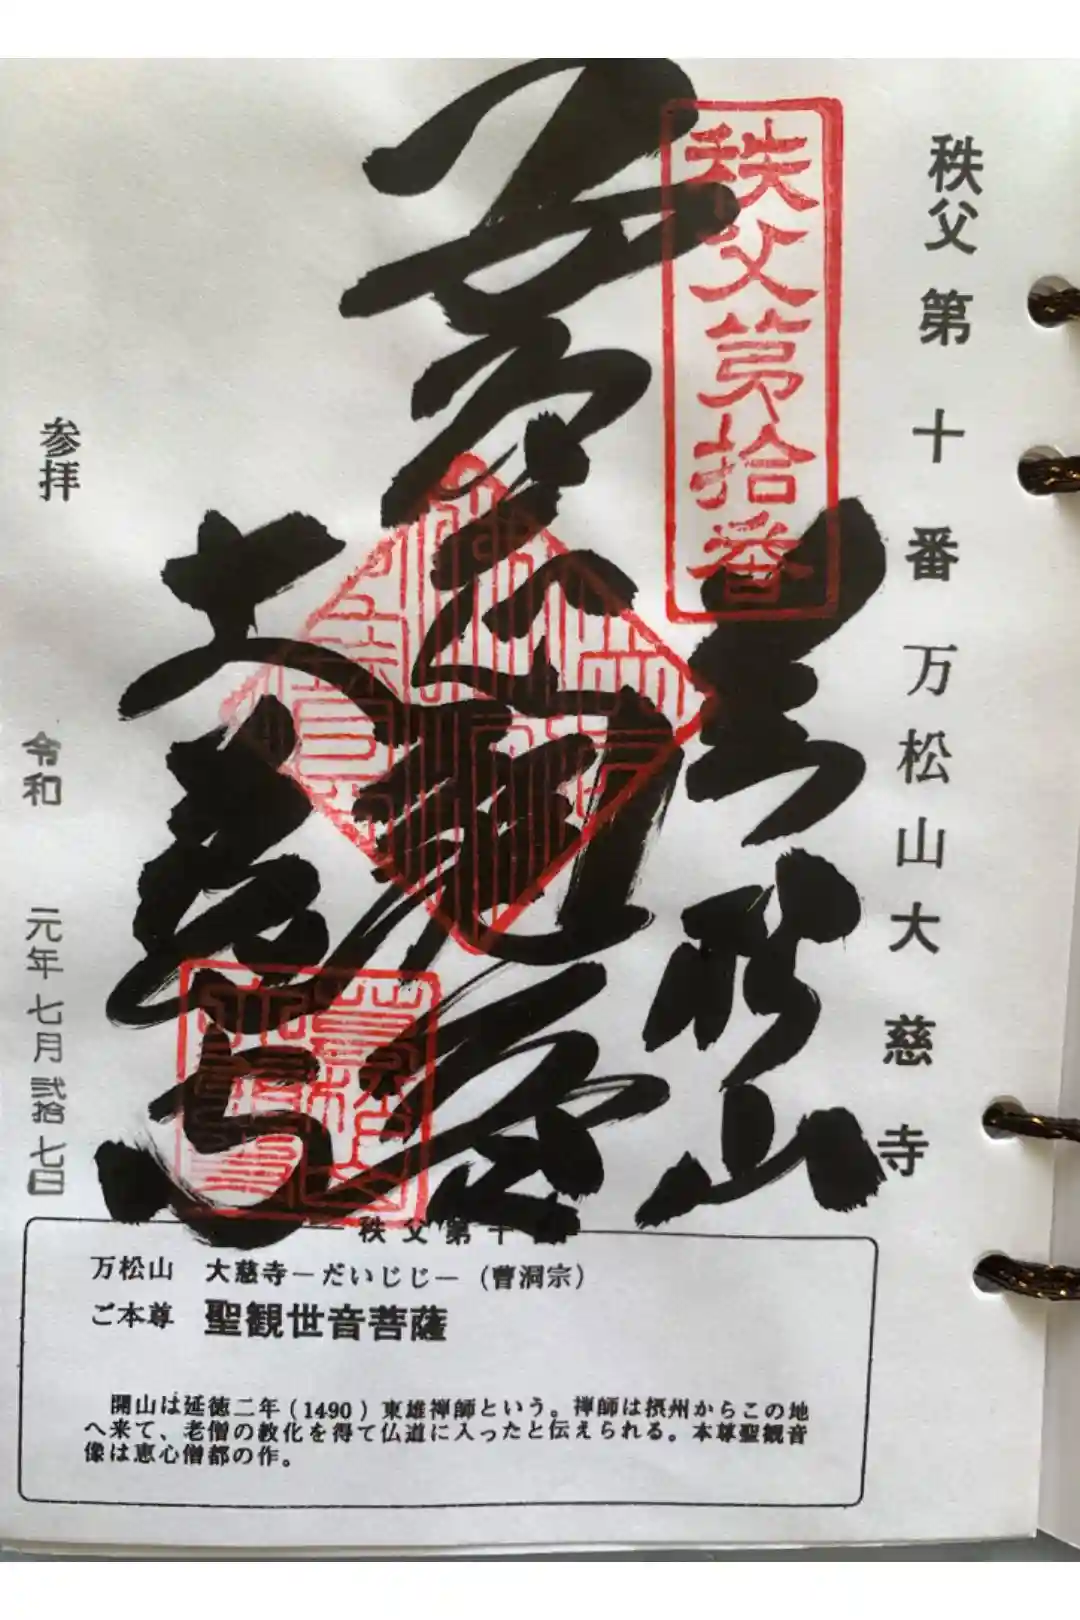 秩父第十番万松山大慈寺
秩父第拾番
万松山
大慈寺
参拝
令和 元年 七月 弐拾七日
秩父第十
万松山 大慈寺－だいじじ－（曹洞宗）
ご本尊 聖観世音菩薩
開山は延徳二年（1490）東雄禅師という。禅師は摂州からこの地
へ来て、老僧の教化を得て仏道に入ったと伝えられる。本尊聖観音
像は恵心僧都の作。